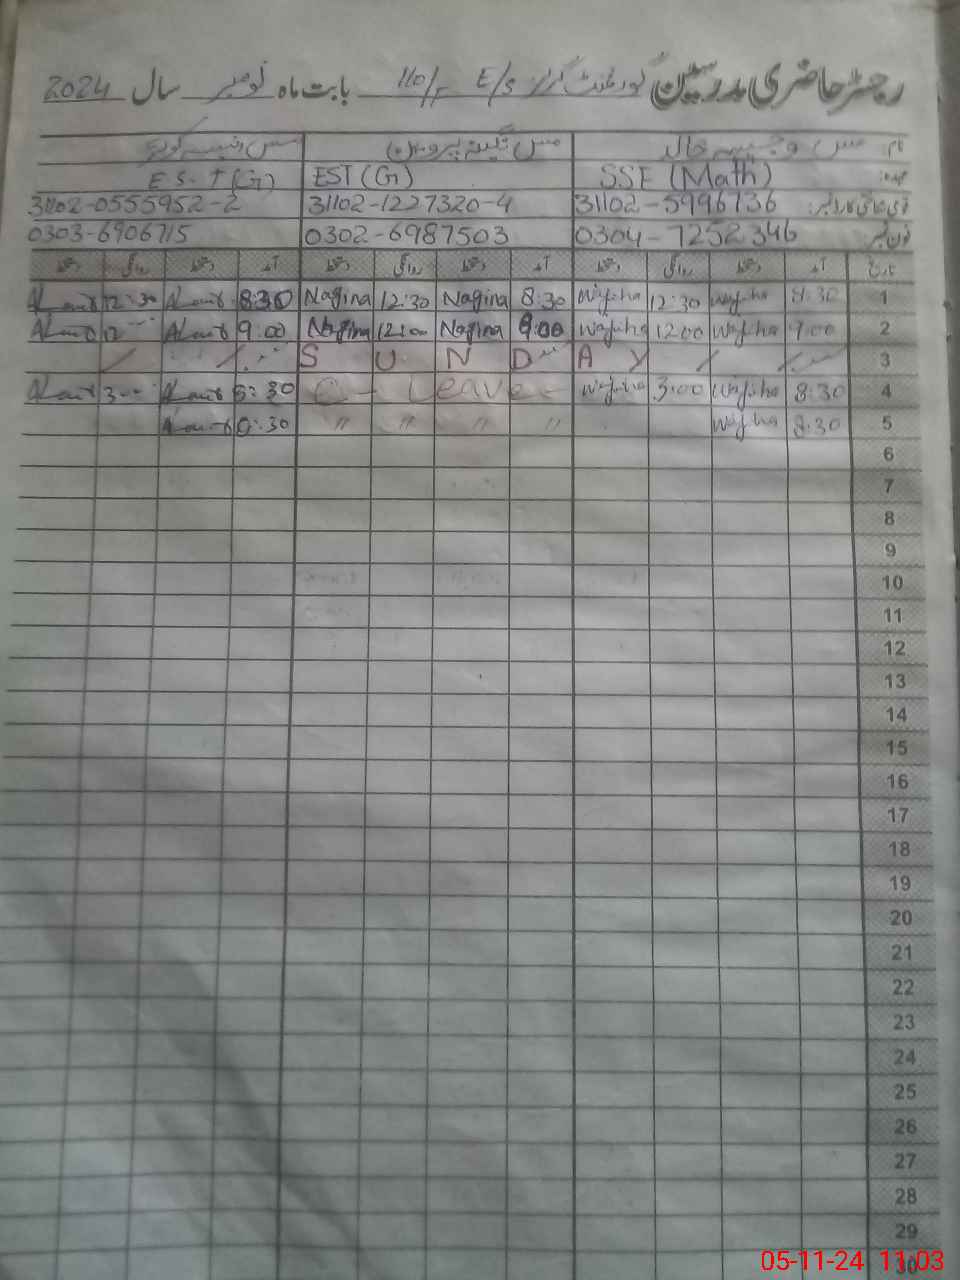 رجسٹر حاضری مدرسین گورنمنٹ گرلز E/S 110/F بابت ماہ نومبر سال 2024
نام: مس وجیہہ خالد مس نگینہ پروین مس
عہدہ: SSE (Math) EST (G) E.S.T (G)
قومی شناختی کارڈ نمبر: 31102-5996136 31102-1227320-4 31102-0555952-2
فون نمبر: 0304-7252346 0302-6987503 0303-6906715
تاریخ آمد دستخط روانگی دستخط آمد دستخط روانگی دستخط آمد دستخط روانگی دستخط
1 8:30 Wajiha 12:30 Wajiha 8:30 Nagina 12:30 Nagina 8:30 12:30
2 9:00 Wajiha 12:00 Wajiha 9:00 Nagina 12:00 Nagina 9:00 12
3 S U N D A Y
4 8:30 Wajiha 3:00 Wajiha C - Leave - 8:30 3
5 8:30 Wajiha " " " " 8:30
6
7
8
9
10
11
12
13
14
15
16
17
18
19
20
21
22
23
24
25
26
27
28
29
30
05-11-24 11:03